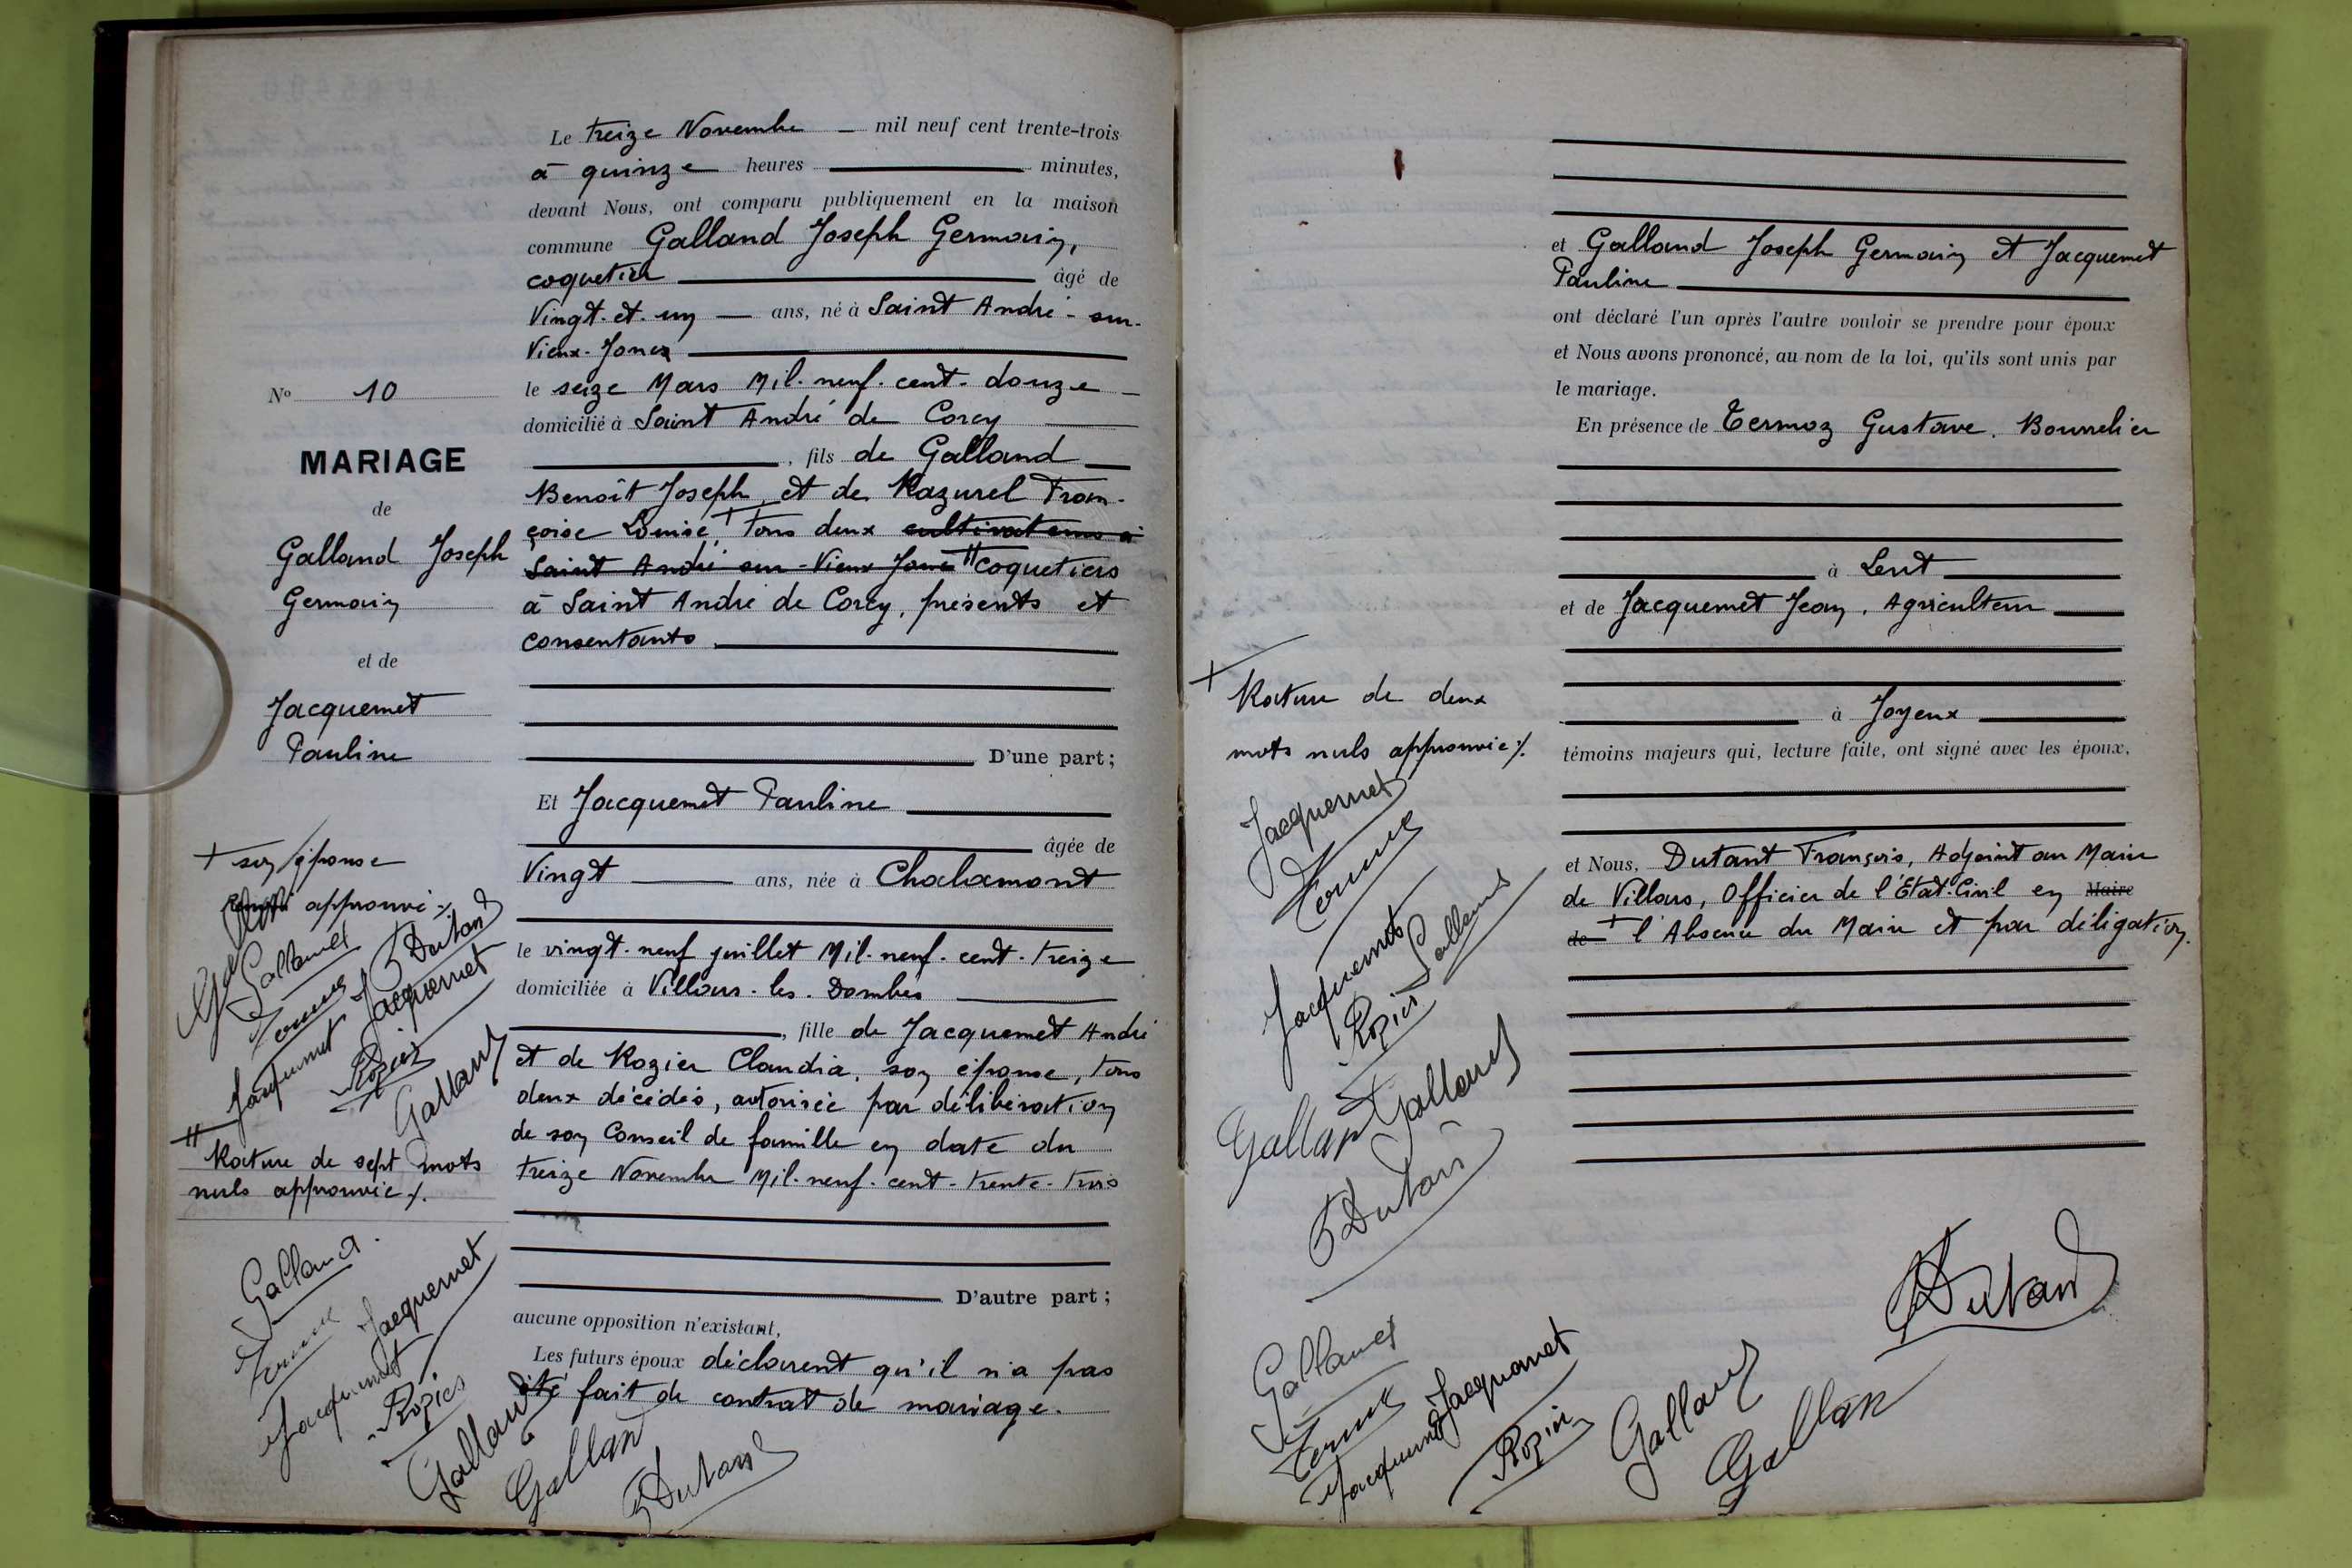 Le treize Novembre — mil neuf cent trente-trois
à quinze heures minutes,
devant Nous, ont comparu publiquement en la maison
commune Galland Joseph Germain,
coquetier âgé de
Vingt-et-un — ans, né à Saint André-sur-
Vieux-Jonc
le seize Mars Mil-neuf-cent-douze
domicilié à Saint André de Corcy
, fils de Galland
Benoît Joseph et de Mazurel Fran-
çoise Louise, + tous deux cultivateurs à
Saint André sur-Vieux Jonc # coquetiers
à Saint André de Corcy, présents et
consentants.
D'une part ;
Et Jacquemet Pauline
âgée de
Vingt — ans, née à Chalamont
le vingt-neuf juillet Mil-neuf-cent-treize
domiciliée à Villars-les-Dombes
, fille de Jacquemet André
et de Rozier Claudia, son épouse, tous
deux décédés, autorisée par délibération
de son Conseil de famille en date du
treize Novembre Mil-neuf-cent-trente-trois
D'autre part ;
aucune opposition n'existant,
Les futurs époux déclarent qu'il n'a pas
été fait de contrat de mariage.
Galland
Gallan
Dutand
No 10
MARIAGE
de
Galland Joseph
Germain
et de
Jacquemet
Pauline
+ son épouse
approuvé
Galland
Dutand
Jacquemet
Jacquemet
Rozier
Galland
# Rature de sept mots
nuls approuvée
Galland
Jacquemet
Jacquemet
Rozier
et Galland Joseph Germain et Jacquemet
Pauline
ont déclaré l'un après l'autre vouloir se prendre pour époux
et Nous avons prononcé, au nom de la loi, qu'ils sont unis par
le mariage.
En présence de Termoz Gustave. Bourrelier
à Lent
et de Jacquemet Jean, Agriculteur
à Joyeux
témoins majeurs qui, lecture faite, ont signé avec les époux,
et Nous, Dutant François, Adjoint au Maire
de Villars, Officier de l'Etat-Civil en Maire
de + l'Absence du Maire et par déligation.
+ Rature de deux
mots nuls approuvée
Jacquemet
Termoz
Jacquemet
Galland
Rozier
Galland
Gallan
Dutand
Dutand
Galland
Termoz
Jacquemet
Jacquemet
Rozier
Galland
Gallan